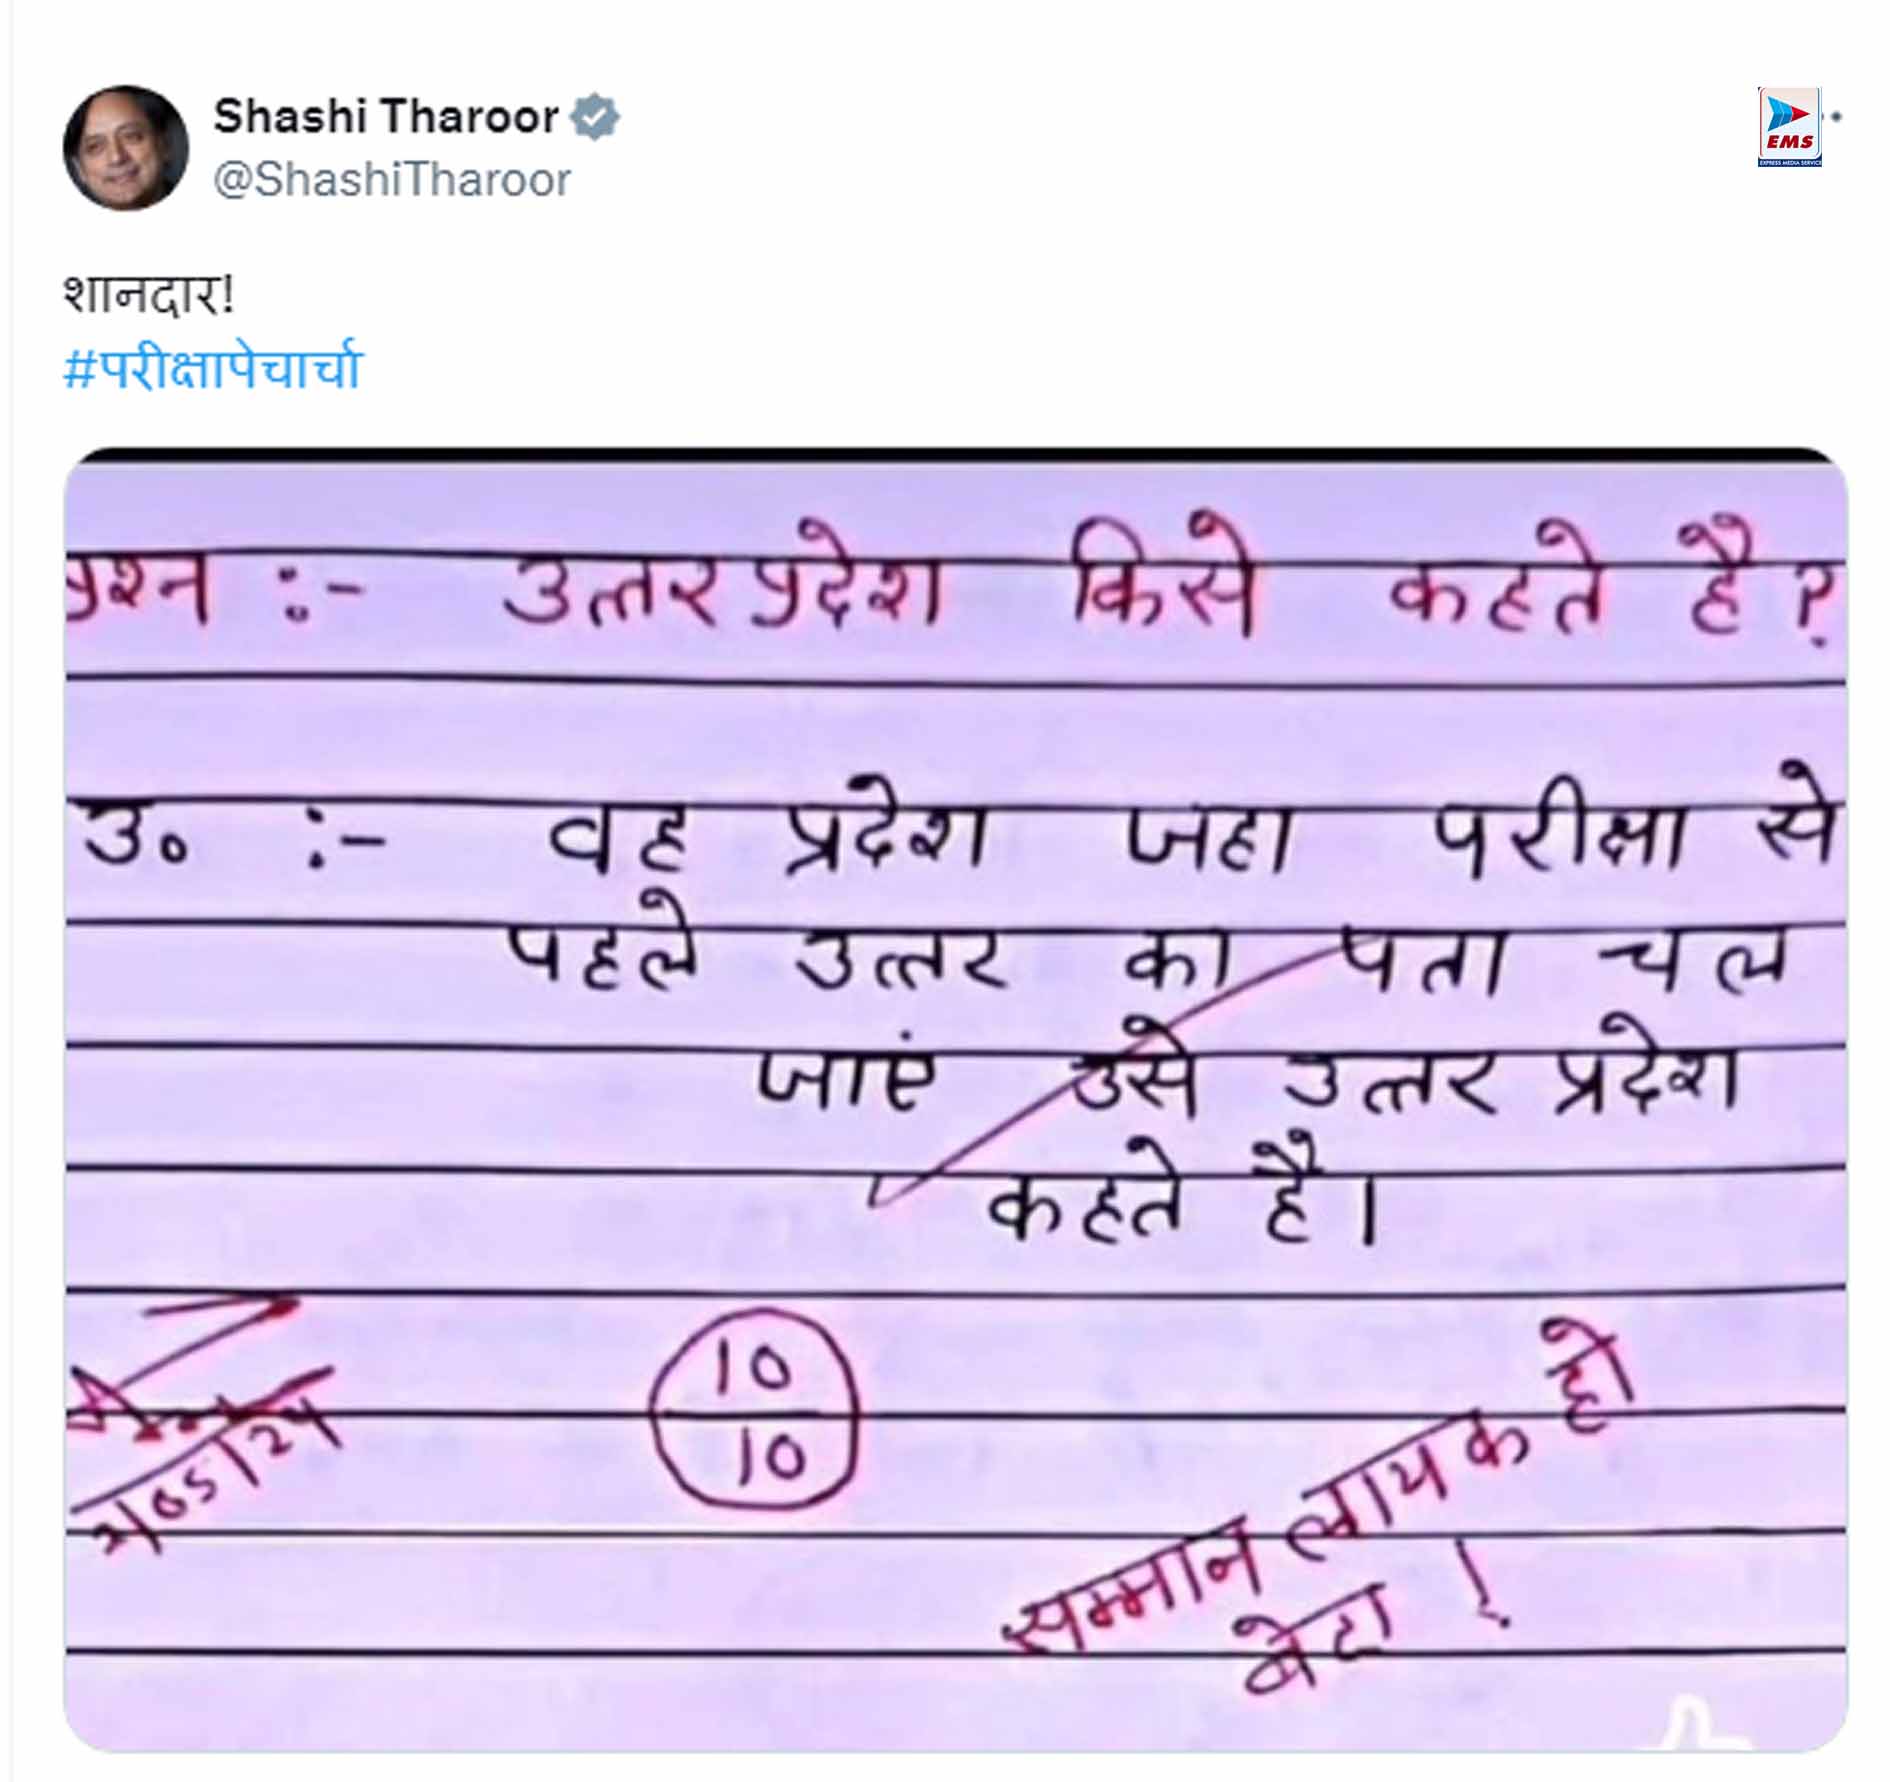 Shashi Tharoor
@ShashiTharoor
EMS
EXPRESS MEDIA SERVICE
शानदार!
#परीक्षापेचार्चा
प्रश्न :- उत्तर प्रदेश किसे कहते है?
उ० :- वह प्रदेश जहा परीक्षा से
पहले उत्तर का पता चल
जाएं उसे उत्तर प्रदेश
कहते है।
10
10
सम्मान लायक हो
बेटा !